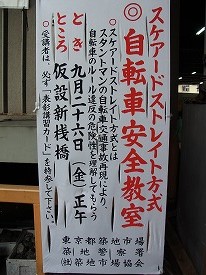 スケアードストレイト方式
◎自転車安全教室
◎スケアードストレイト方式とは
スタントマンの自転車交通事故再現により、
自転車のルール違反の危険性を理解してもらう
とき 九月二十六日（金）正午
ところ 仮設新桟橋
◎受講者は、必ず「表彰講習カード」を持参して下さい。
東京都築地市場
築地警察署